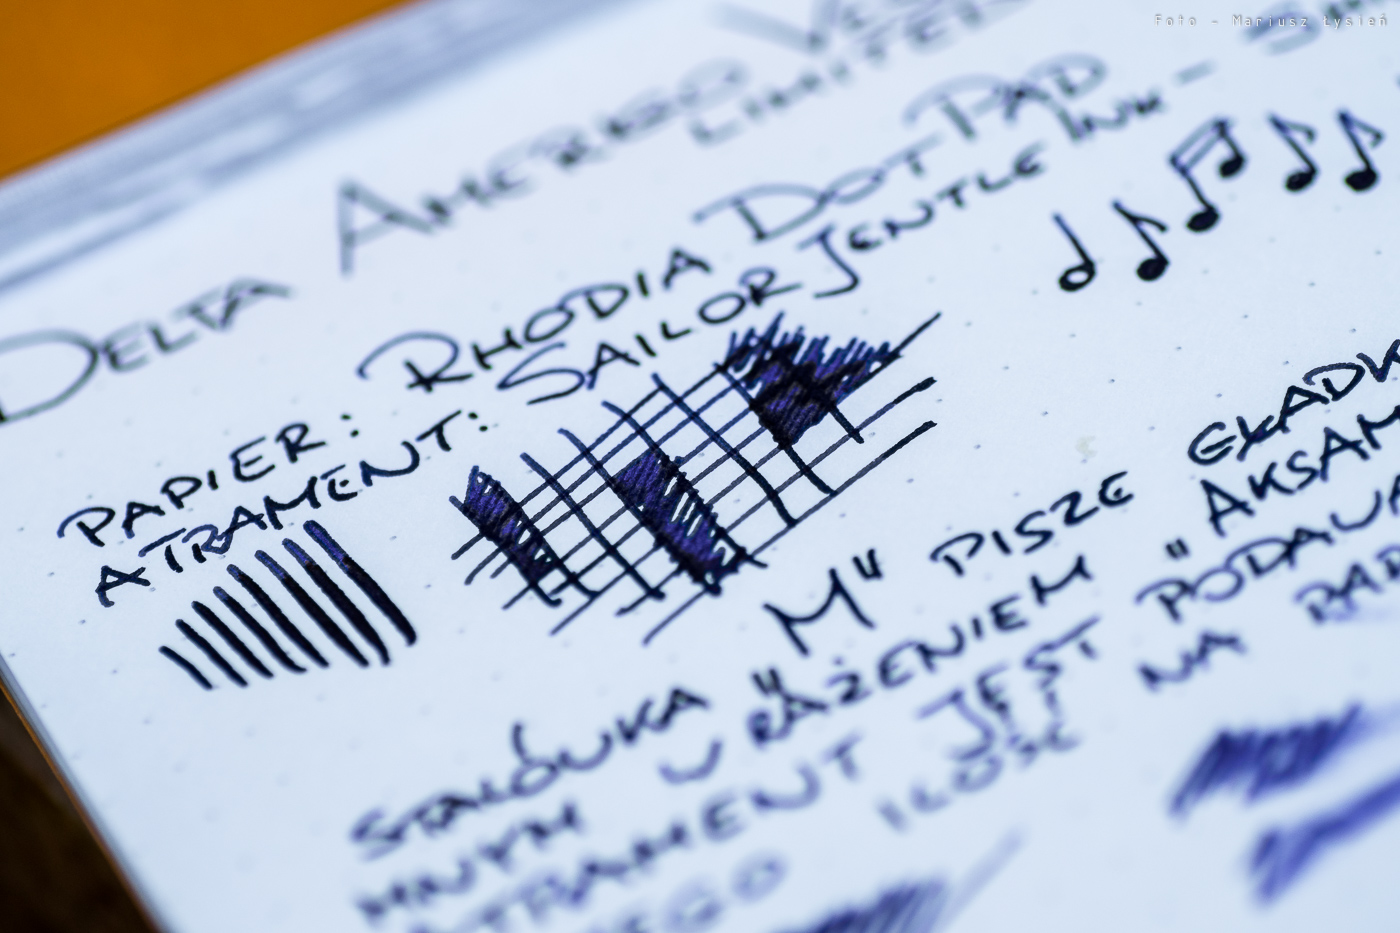 Foto - Mariusz Łysień
DELTA AMERIGO
LIMITED
PAPIER: RHODIA DOT PAD
ATRAMENT: SAILOR JENTLE INK -
STALÓWKA "M" PISZE GŁADK
W RAŻENIEM "AKSAM
MNYM
ATRAMENT JEST PODAWA
ILOŚĆ NA PAP